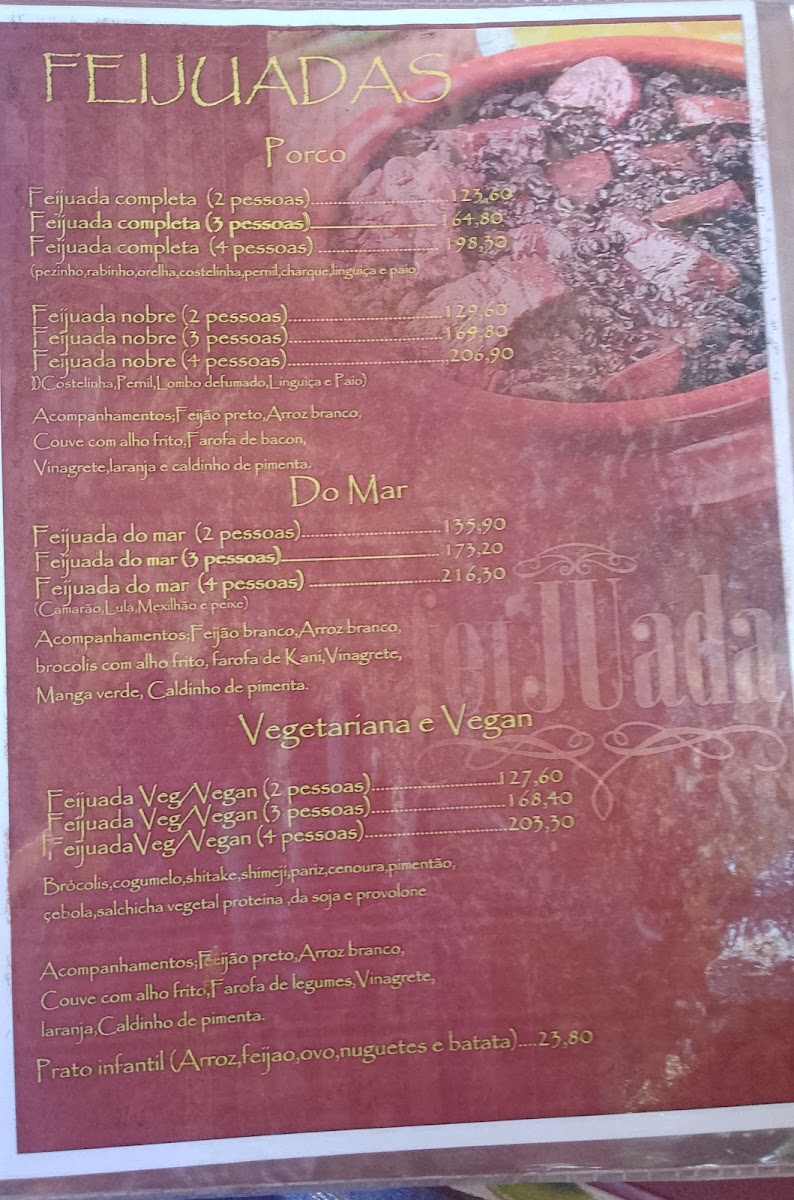 FEIJUADAS
Porco
Feijuada completa (2 pessoas)..............................123,60
Feijuada completa (3 pessoas)..............................164,80
Feijuada completa (4 pessoas)..............................198,30
(pezinho,rabinho,orelha,costelinha,pernil,charque,linguiça e paio)
Feijuada nobre (2 pessoas)..............................129,60
Feijuada nobre (3 pessoas)..............................169,80
Feijuada nobre (4 pessoas)..............................206,90
D(Costelinha,Pernil,Lombo defumado,Linguiça e Paio)
Acompanhamentos;Feijão preto,Arroz branco,
Couve com alho frito,Farofa de bacon,
Vinagrete,laranja e caldinho de pimenta.
Do Mar
Feijuada do mar (2 pessoas)..............................135,90
Feijuada do mar (3 pessoas)..............................173,20
Feijuada do mar (4 pessoas)..............................216,30
(Camarão,Lula,Mexilhão e peixe)
Acompanhamentos;Feijão branco,Arroz branco,
brocolis com alho frito, farofa de Kani,Vinagrete,
Manga verde, Caldinho de pimenta.
feiJUada
Vegetariana e Vegan
Feijuada Veg/Vegan (2 pessoas)..............................127,60
Feijuada Veg/Vegan (3 pessoas)..............................168,40
FeijuadaVeg/Vegan (4 pessoas)..............................203,30
Brócolis,cogumelo,shitake,shimeji,pariz,cenoura,pimentão,
çebola,salchicha vegetal proteina ,da soja e provolone
Acompanhamentos;Feijão preto,Arroz branco,
Couve com alho frito,Farofa de legumes,Vinagrete,
laranja,Caldinho de pimenta.
Prato infantil (Arroz,feijao,ovo,nuguetes e batata)....23,80